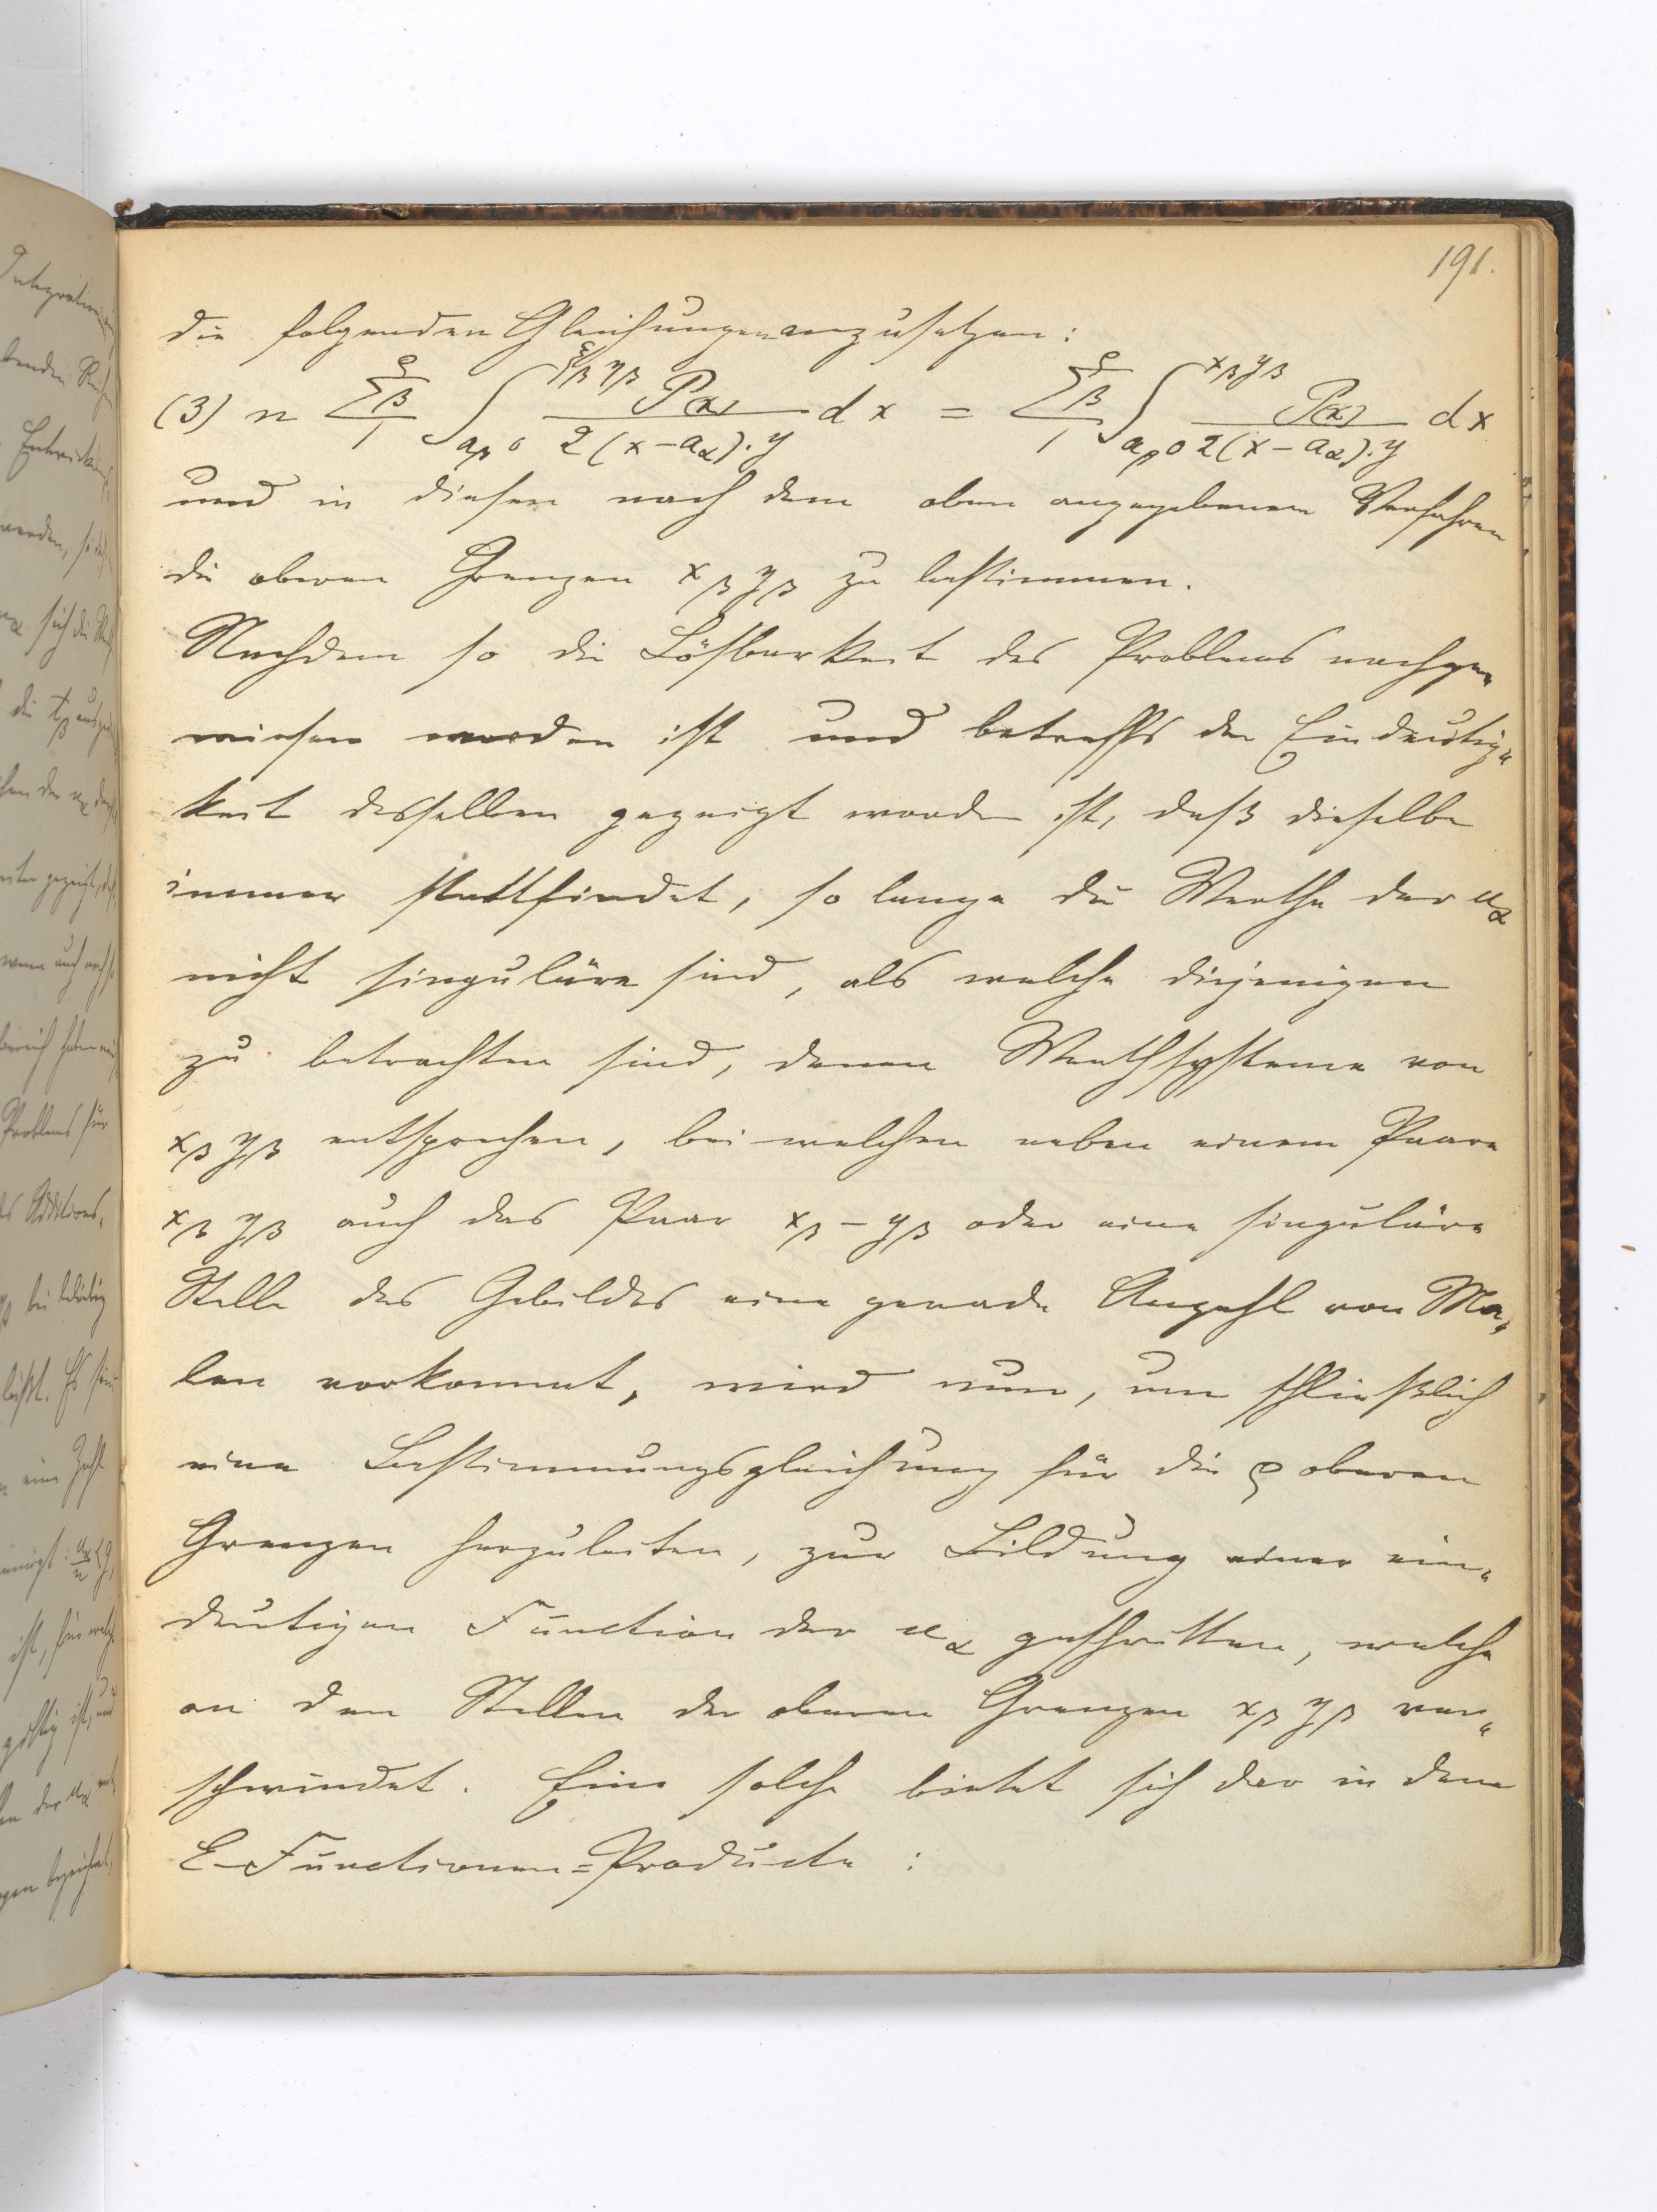 191.
die folgenden Gleichungen anzusetzen:
(3) n Σβ₁^ρ ∫_{a_β 0}^{ξ_β η_β} P(x) / 2(x-a_α).y dx = Σβ₁^ρ ∫_{a_β 0}^{x_β y_β} P(x) / 2(x-a_α).y dx
und in diesen nach dem oben angegebenen Verfahren
die oberen Grenzen x_β y_β zu bestimmen.
Nachdem so die Lösbarkeit des Problems nachge„
wiesen worden ist und betreffs der Eindeutig„
keit desselben gezeigt worden ist, daß dieselbe
immer stattfindet, so lange die Werthe der u_α
nicht singuläre sind, als welche diejenigen
zu betrachten sind, denen Werthsysteme von
x_β y_β entsprechen, bei welchen neben einem Paare
x_β y_β auch das Paar x_β -y_β oder eine singuläre
Stelle des Gebildes eine gerade Anzahl von Ma„
len vorkommt, wird nun, um schließlich
eine Bestimmungsgleichung für die ρ oberen
Grenzen herzuleiten, zur Bildung einer ein„
deutigen Function der u_α geschritten, welche
an den Stellen der oberen Grenzen x_β y_β ver„
schwindet. Eine solche bietet sich dar in dem
E-Functionen=Producte: